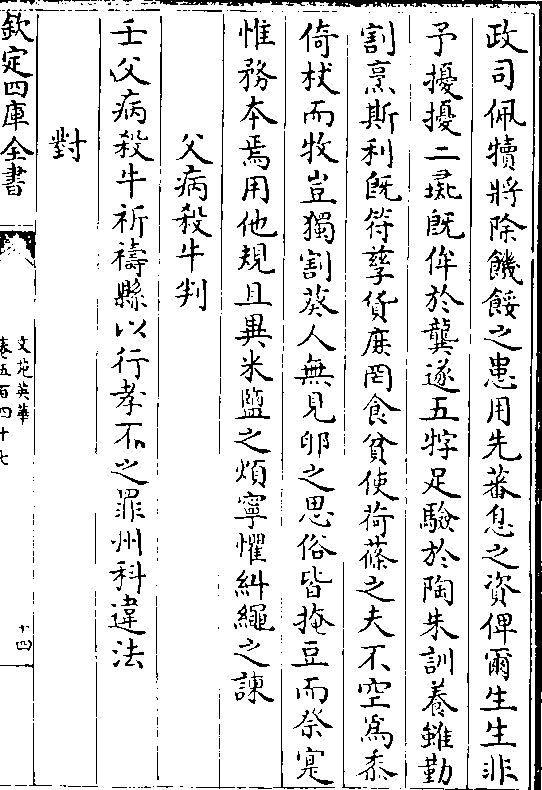 政司佩犢將除饑餒之患用先蕃息之資俾爾生生非
予擾擾二彘既侔於龔遂五牸足驗於陶朱訓養雖勤
割烹斯利既符孳貨庶罔食貧使荷蓧之夫不空為黍
倚杖而牧豈獨割葵人無見卵之思俗皆掩豆而祭寔
惟務本焉用他規且異米鹽之煩寧懼糾繩之諫
父病殺牛判
壬父病殺牛祈禱縣以行孝不之罪州科違法
對
欽定四庫全書
文苑英華
卷五百四十七
十四